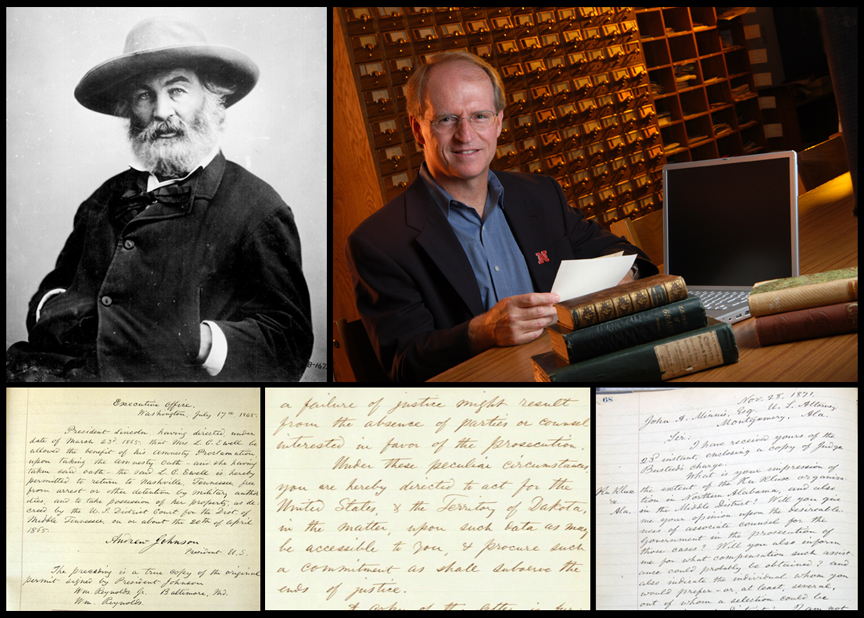 N
Executive Office.
Washington, July 17th 1865.
President Lincoln having directed, under
date of March 23d. 1865. that Mrs L. C. Ewell be
allowed the benefit of his Amnesty Proclamation,
upon taking the Amnesty Oath - and she having
taken said oath - the said L. C. Ewell is hereby
permitted to return to Nashville, Tennessee, free
from arrest or other detention by military author
ities, and to take possession of her property, as de-
creed by the U. S. District Court for the Dist of
Middle Tennessee, on or about the 20th of April
1865.
Andrew Johnson
President U. S.
The preceding is a true copy of the original
permit signed by President Johnson
Wm Reynolds Jr. Baltimore, Md.
Wm. Reynolds.
a failure of justice might result
from the absence of parties or counsel
interested in favor of the prosecution.
Under these peculiar circumstances
you are hereby directed to act for the
United States, & the Territory of Dakota,
in the matter, upon such data as may
be accessible to you, & procure such
a commitment as shall subserve the
ends of justice.
68
Nov. 28, 1871.
John A. Minnis, Esq. U. S. Attorney
Montgomery, Ala.
Sir:
I have received yours of the
23d instant, enclosing a copy of Judge
Busteed's charge.
What is your impression of
the extent of the Ku Klux organiza-
tion in Northern Alabama, and also
in the Middle District? Will you give
me your opinion upon the desirable-
ness of associate counsel for the
Government in the prosecution of
those cases? Will you also inform
me for what compensation such assist-
ance could probably be obtained? and
also indicate the individual whom you
would prefer - or, at least, several,
out of whom a selection could be
Ku Klux
Ala.